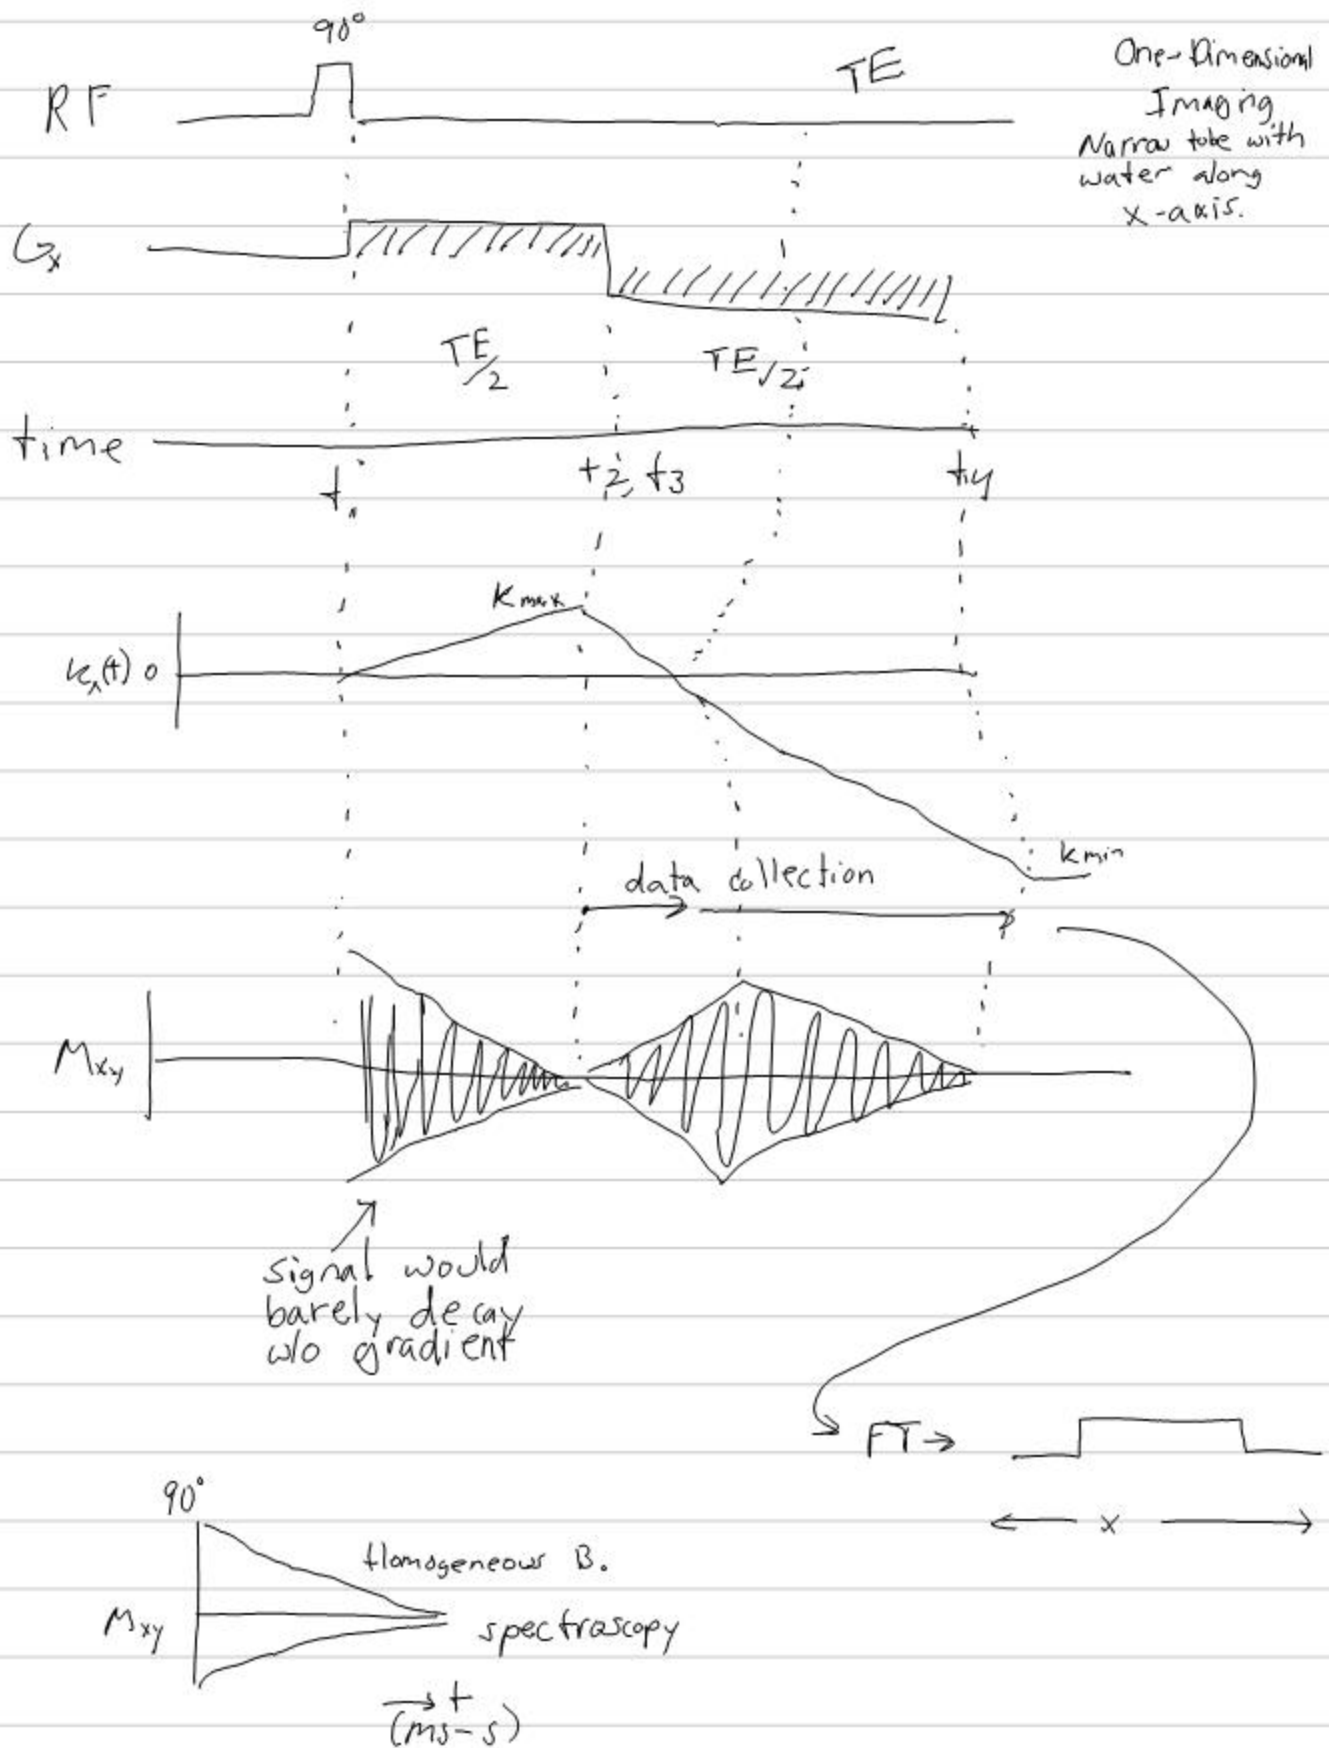 90°
RF
TE
One-Dimensional
Imaging
Narrow tube with
water along
x-axis.
Gx
TE/2
TE/2
time
t1
t2, t3
t4
kmax
kx(t) 0
kmin
data collection
Mxy
signal would
barely decay
w/o gradient
FT →
x
90°
Homogeneous B0
Mxy
spectroscopy
→ t
(ms-s)